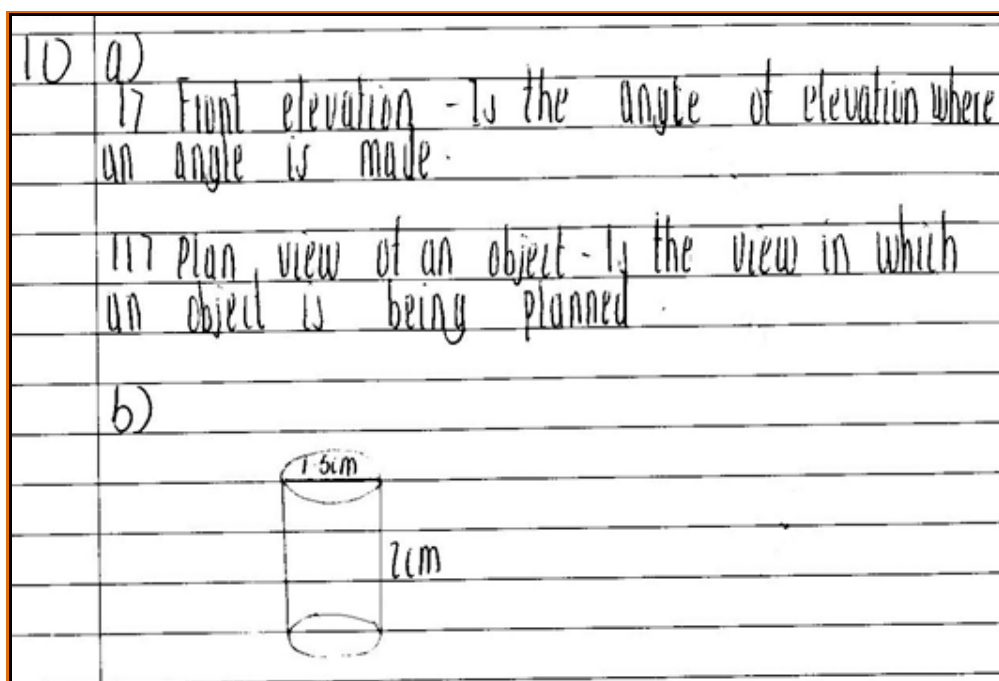 10 a)
i7 Front elevation - Is the angle of elevation where
an angle is made.
ii7 Plan view of an object - Is the view in which
an object is being planned.
b)
1.5cm
2cm